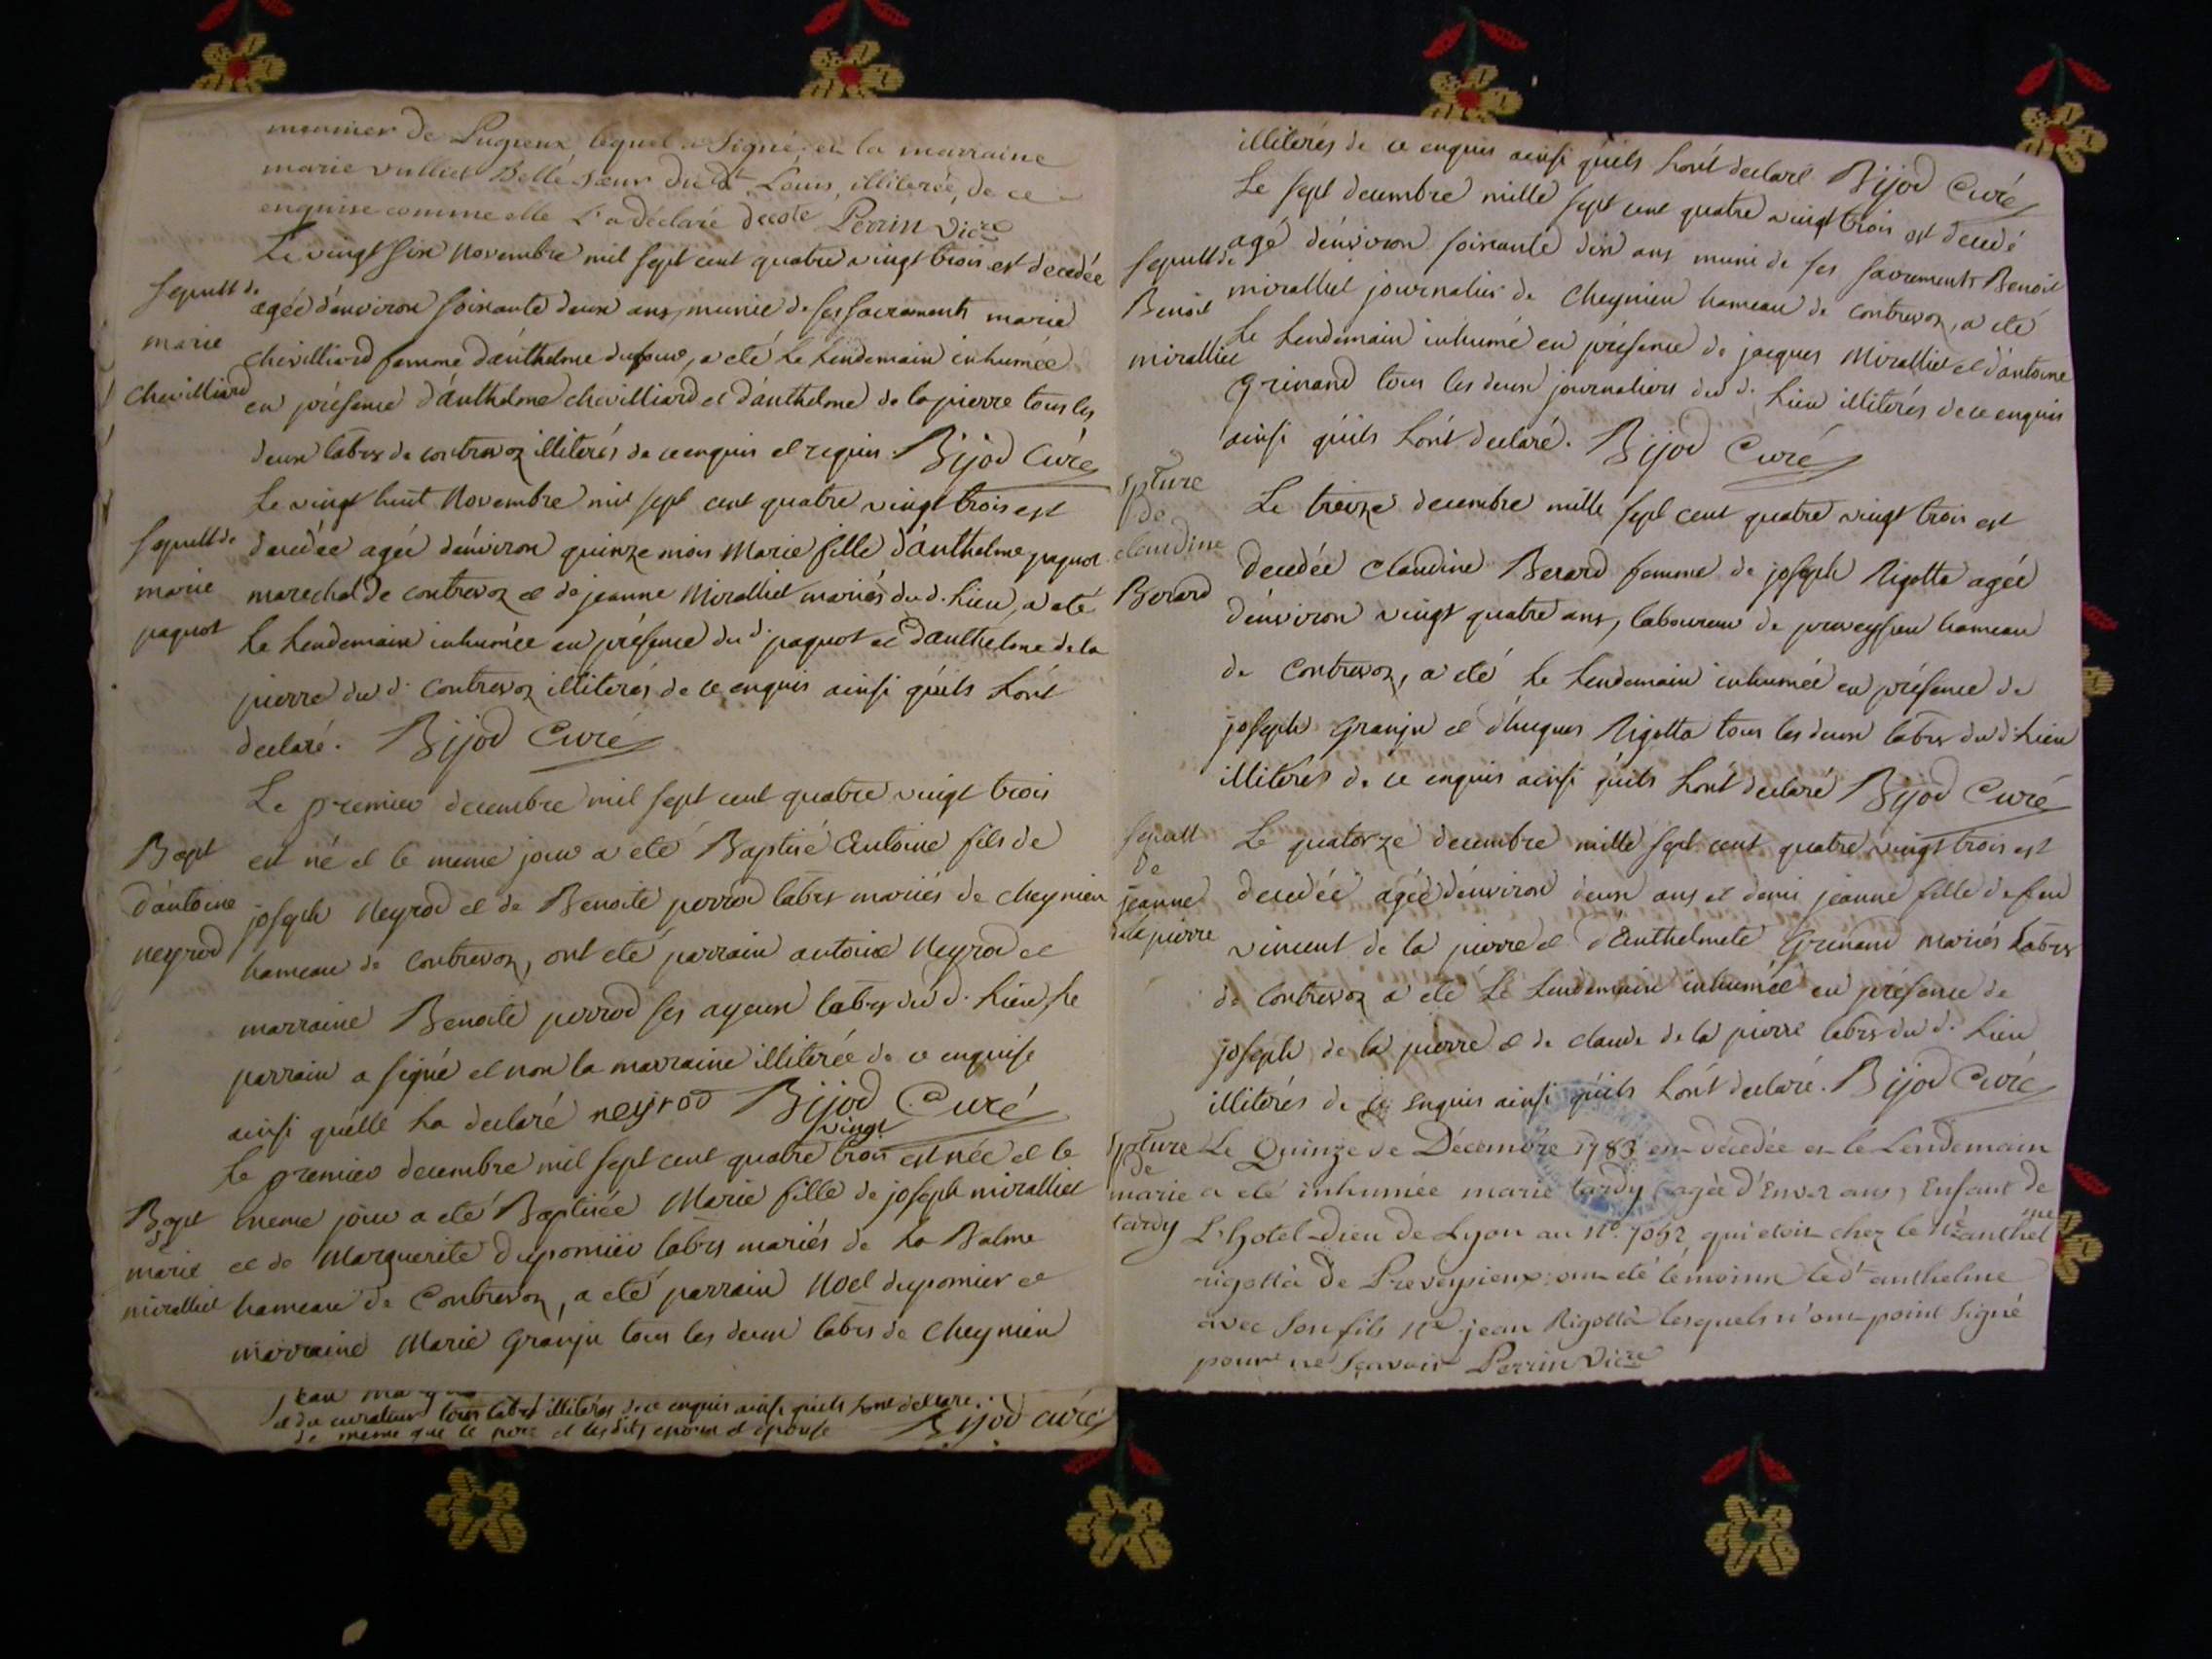 meunier de Pugieux lequel a Signé, et la marraine
marie vulliet Belle Sœur du dt Louis, illiterée, de ce
enquise comme elle L'a déclaré Perrin Vicre
Le vingt six Novembre mil sept cent quatre vingt trois est decedée
sepult de
agée d'environ soixante deux ans, munie de ses sacrements marie
marie
chevilliard femme d'anthelme dufour, a eté le Lendemain inhumée
Chevilliard
en présence d'anthelme chevilliard et d'anthelme de la pierre tous les
deux labrs de contrevoz illiterés de ce enquis et requis. Bijod Curé
Le vingt huit Novembre mil sept cent quatre vingt trois est
sepult de
decedée agée d'environ quinze mois Marie fille d'anthelme paquot
marie
marechal de contrevoz et de jeanne Miralliet mariés du d. Lieu, a eté
paquot
Le Lendemain inhumée en présence du d. paquot et d'anthelme de la
pierre du d. Contrevoz illiterés de ce enquis ainsi qu'ils L'ont
declaré. Bijod Curé
Le premier decembre mil sept cent quatre vingt trois
Bapt
est né et le meme jour a eté Baptisé Antoine fils de
d'antoine
joseph Neyrod et de Benoite perrod labrs mariés de Cheynieu
neyrod
hameau de Contrevoz, ont eté parrain antoine Neyrod et
marraine Benoite perrod ses ayeux labrs du d. Lieu, Le
parrain a signé et non la marraine illiterée de ce enquise
ainsi qu'elle La declaré neyrod Bijod Curé
vingt
Le premier decembre mil sept cent quatre trois est née et le
Bapt
meme jour a eté Baptisée Marie fille de joseph miralliet
marie
et de Marguerite dupomier labrs mariés de La Balme
miralliet
hameau de Contrevoz, a eté parrain Noel dupomier et
marraine Marie Granju tous les deux labrs de Cheynieu
et du curateur tous labrs illiterés de ce enquis ainsi qu'ils L'ont declaré.
de meme que le pere et lesdits epoux et epouse Bijod Curé
illiterés de ce enquis ainsi qu'ils L'ont declaré Bijod Curé
Le sept decembre mille sept cent quatre vingt trois est decedé
sepult de
agé d'environ soixante dix ans muni de ses sacrements Benoit
Benoit
miralliet journalier de Cheynieu hameau de Contrevoz, a eté
miralliet
Le Lendemain inhumé en présence de jacques Miralliet et d'antoine
Grinand tous les deux journaliers du d. Lieu illiterés de ce enquis
ainsi qu'ils L'ont declaré. Bijod Curé
spture
de
Le treize decembre mille sept cent quatre vingt trois est
claudine
decedée Claudine Berard femme de joseph Rigotta agée
Berard
d'environ vingt quatre ans, laboureur de preveyssieu hameau
de Contrevoz, a eté Le Lendemain inhumée en présence de
joseph Granju et d'hugues Rigotta tous les deux labrs du d. Lieu
illiterés de ce enquis ainsi qu'ils L'ont declaré Bijod Curé
sepult
Le quatorze decembre mille sept cent quatre vingt trois est
de
jeanne
decedée agée d'environ deux ans et demi jeanne fille de feu
de la pierre
vincent de la pierre et d'Anthelmete Grinand mariés Labrs
de Contrevoz a eté Le Lendemain inhumée en présence de
joseph de la pierre et de claude de la pierre labrs du d. Lieu
illiterés de ce enquis ainsi qu'ils L'ont declaré. Bijod Curé
spture
Le Quinze de Décembre 1783 est décedée et le Lendemain
de
marie
a eté inhumée marie tardy agée d'Env 2 ans, Enfant de
tardy
L'hotel-Dieu de Lyon au N° 7052 qui etoit chez le anthelme
rigotta de Preveysieux; ont été témoins le dt anthelme
avec Son fils jean Rigotta lesquels n'ont point Signé
pour ne Scavoir Perrin Vicre